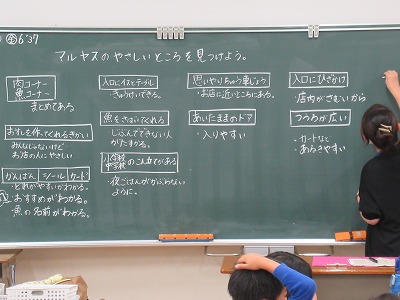 ㊎6'37
マルヤスのやさしいところを見つけよう。
肉コーナー
魚コーナー
まとめてある
おすしを作ってくれるきかい
みんなじゃないけど
お店の人にやさしい
かんばん シール カード
・どれがやすいかわかる。
・おすすめがわかる。
・魚の名前がわかる。
入口にイスとテーブル
・きゅうけいできる。
魚をさばいてくれる
・じぶんでできない人
がたすかる。
小学校
中学校
のこん立てがある
・夜ごはんがかぶらない
ように。
思いやりちゅう車じょう
・お店に近いところにある。
あいたままのドア
・入りやすい
入口にひざかけ
・店内がさむいから
つうろが広い
・カートなど
・あるきやすい